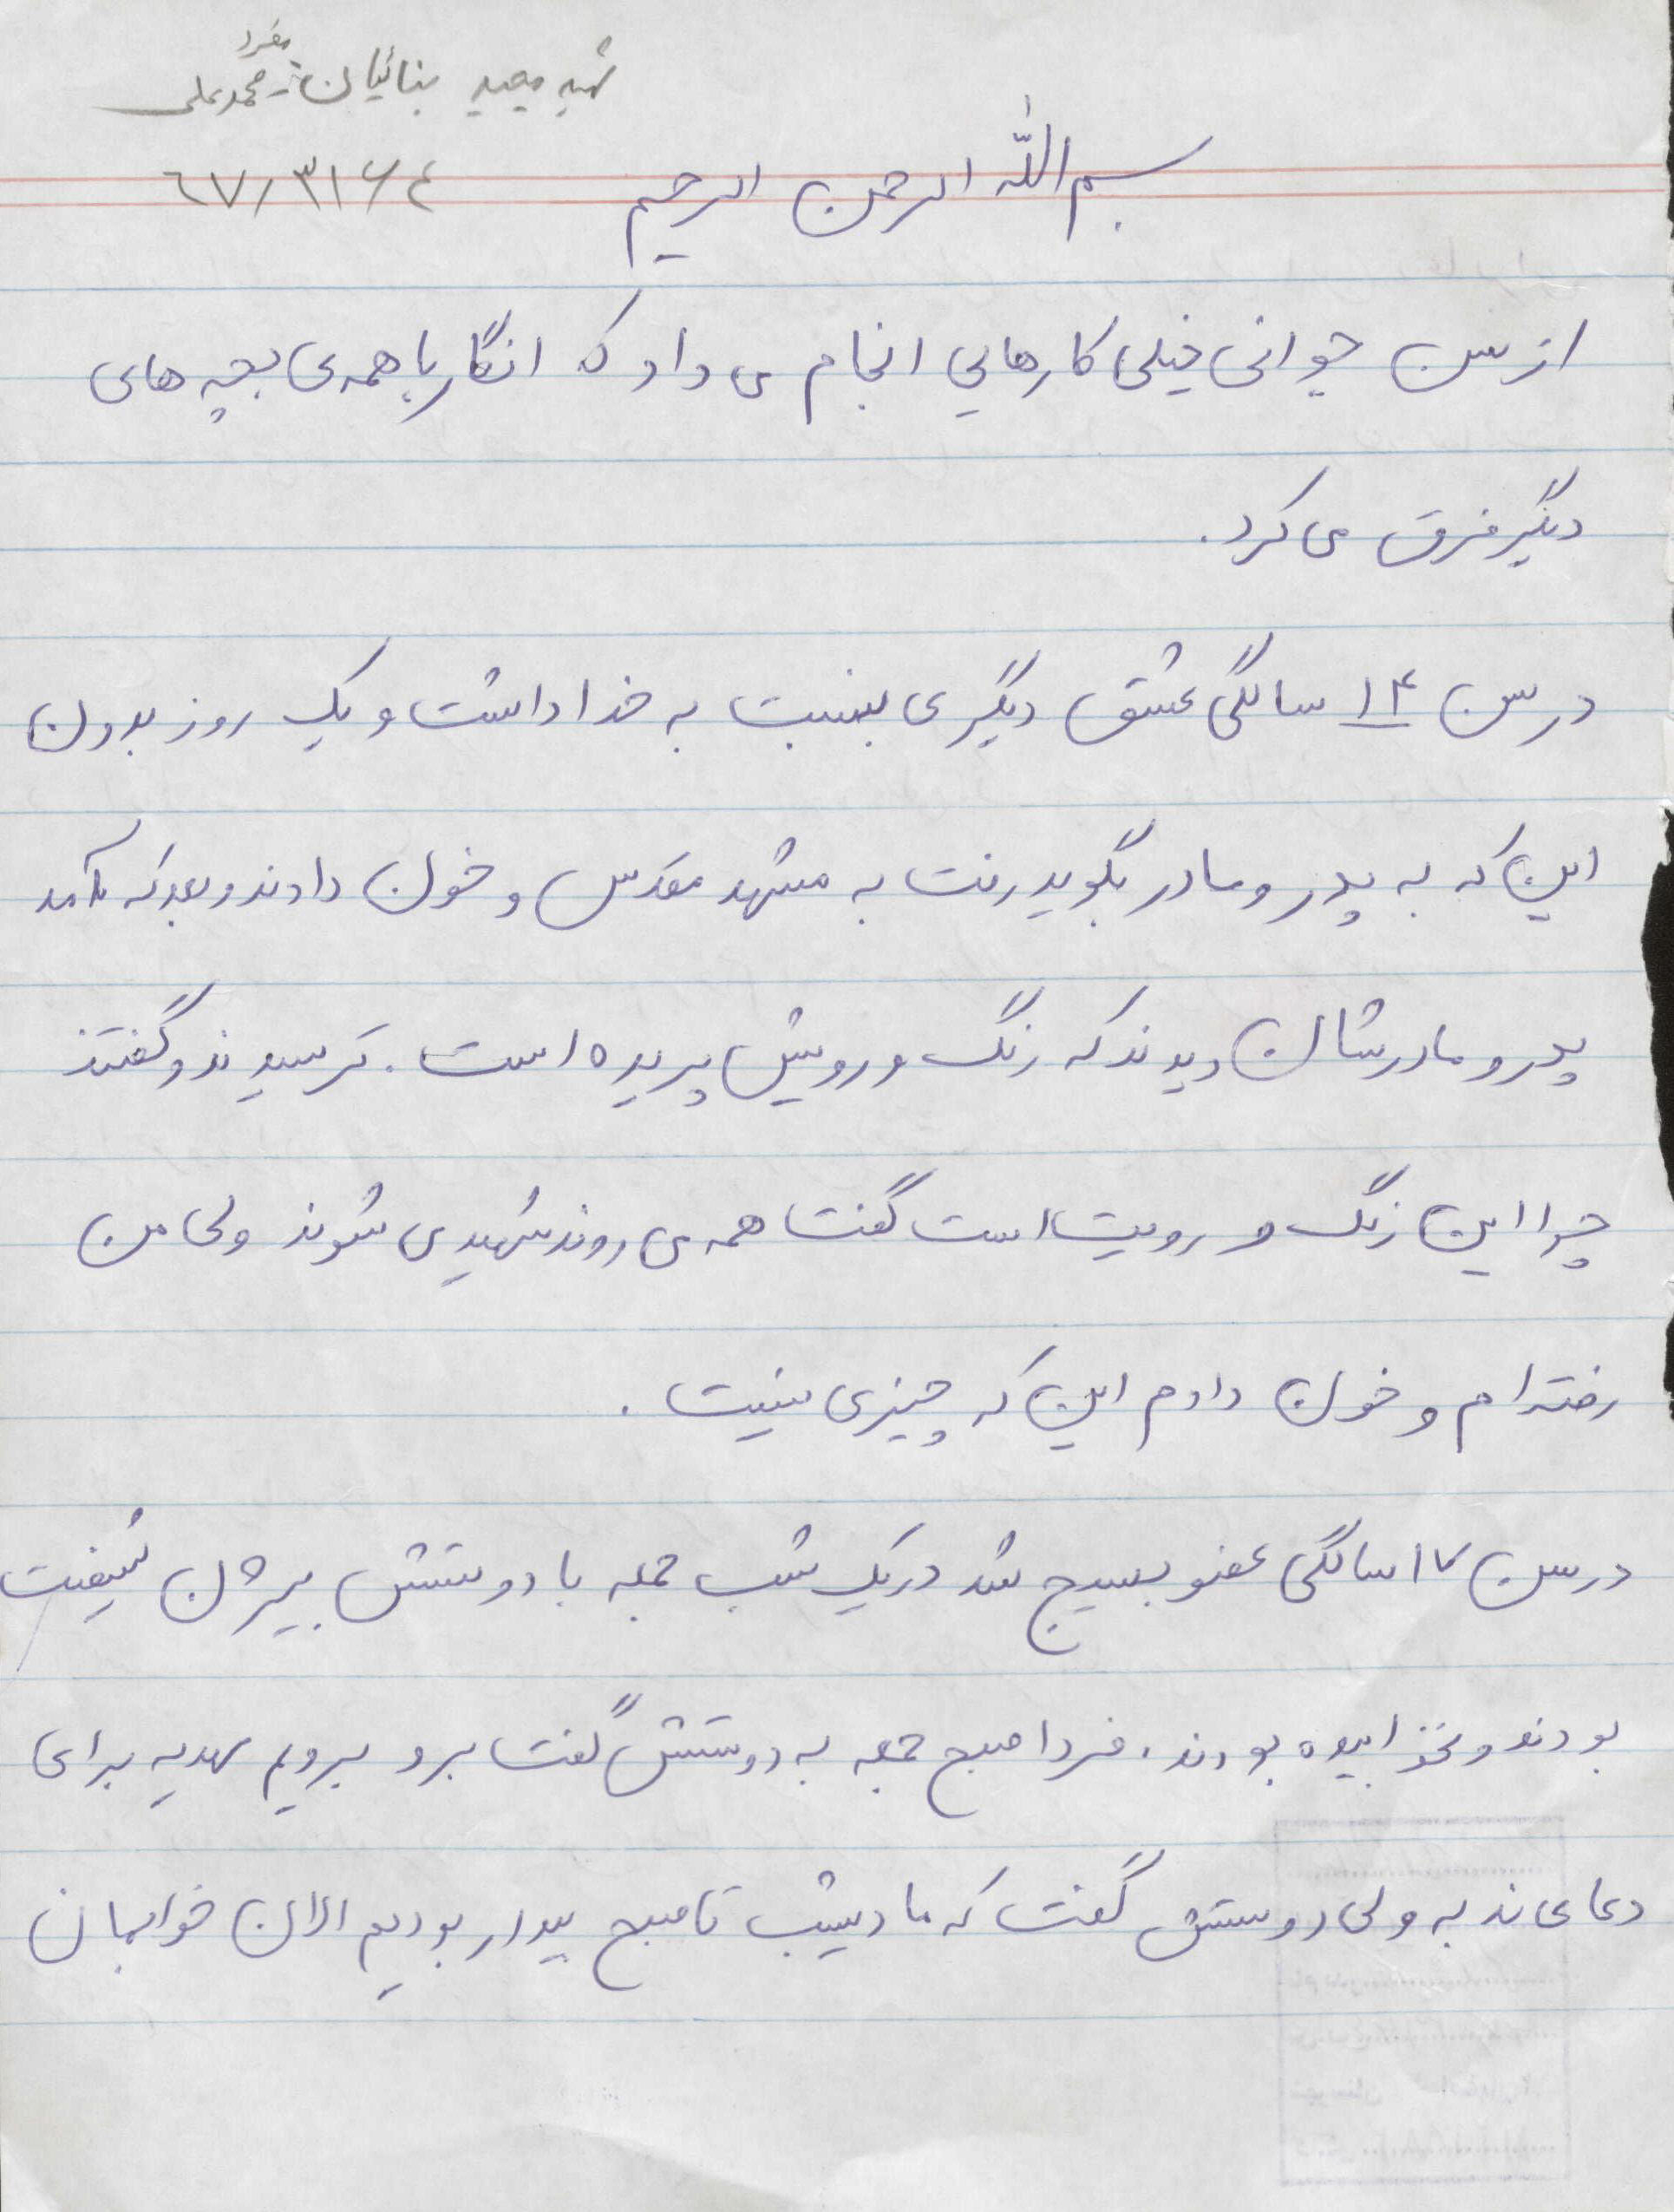 شهید مجید بنائیان مفرد - محمدعلی
٦٧/٣١٦٤
بسم الله الرحمن الرحیم
از سن جوانی خیلی کارهایی انجام می داد که انگار با همه ی بچه های
دیگر فرق می کرد.
در سن ۱۴ سالگی عشق دیگری بنسبت به خدا داشت و یک روز بدون
این که به پدر و مادر بگوید رفت به مشهد مقدس و خون دادند و بعد که آمد
پدر و مادرشان دیدند که رنگ و رویش پریده است. ترسیدند و گفتند
چرا این رنگ و رویت است گفت همه می روند شهید می شوند ولی من
رفته ام و خون دادم این که چیزی نیست.
در سن ۱۷ سالگی عضو بسیج شد در یک شب جمعه با دوستش بیژن شیفت
بودند و نخوابیده بودند. فردا صبح جمعه به دوستش گفت برو برویم مهدیه برای
دعای ندبه ولی دوستش گفت که ما دیشب تا صبح بیدار بودیم الان خوابمان